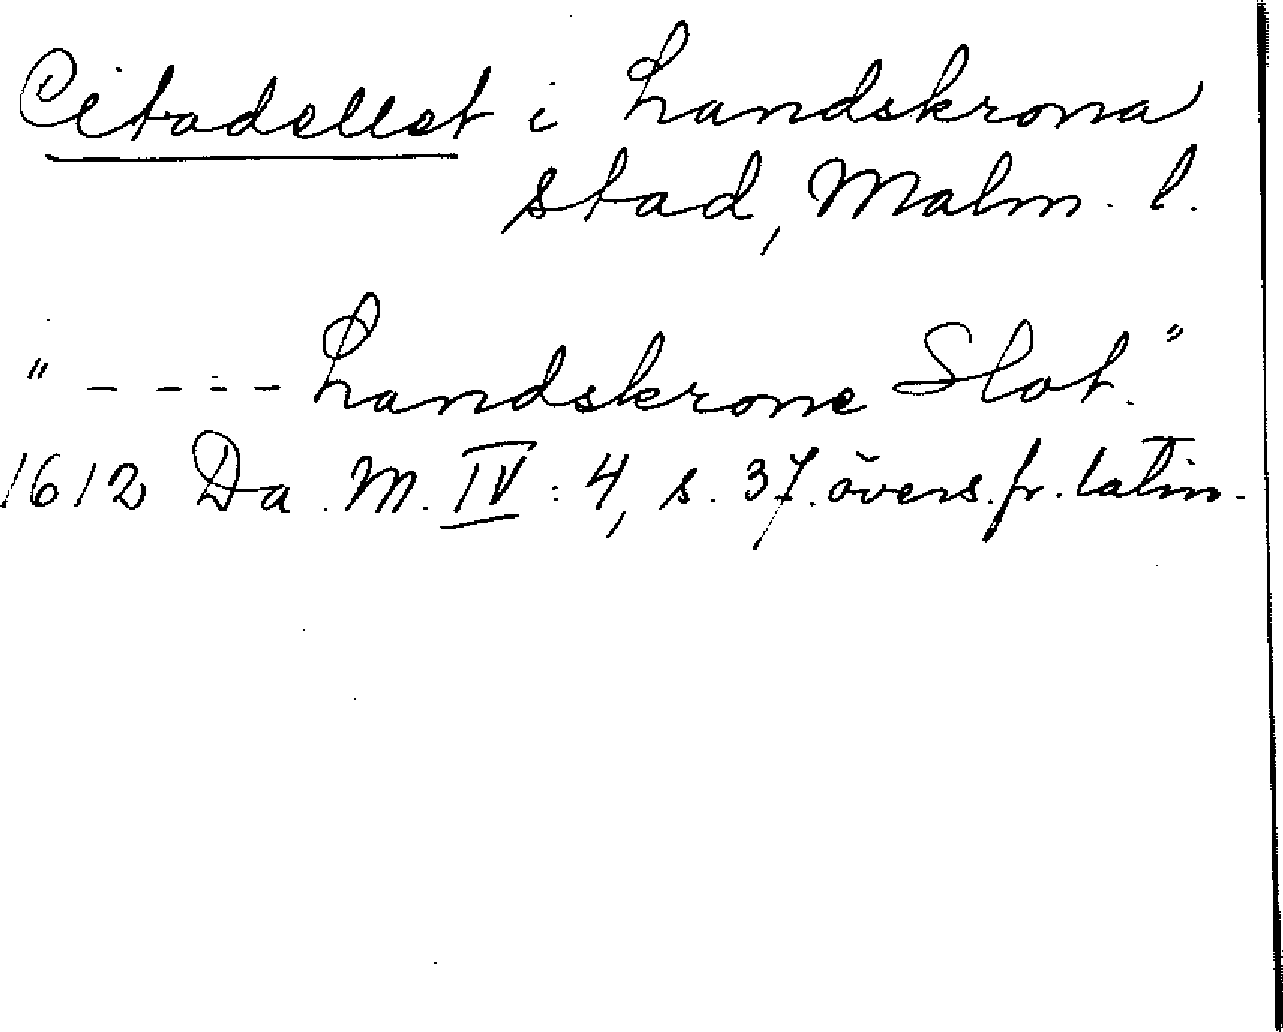 Citadellet i Landskrona
stad, Malm. l.
" - - - - Landskrone Slot."
1612 Da. M. IV: 4, s. 37. övers. fr. latin.